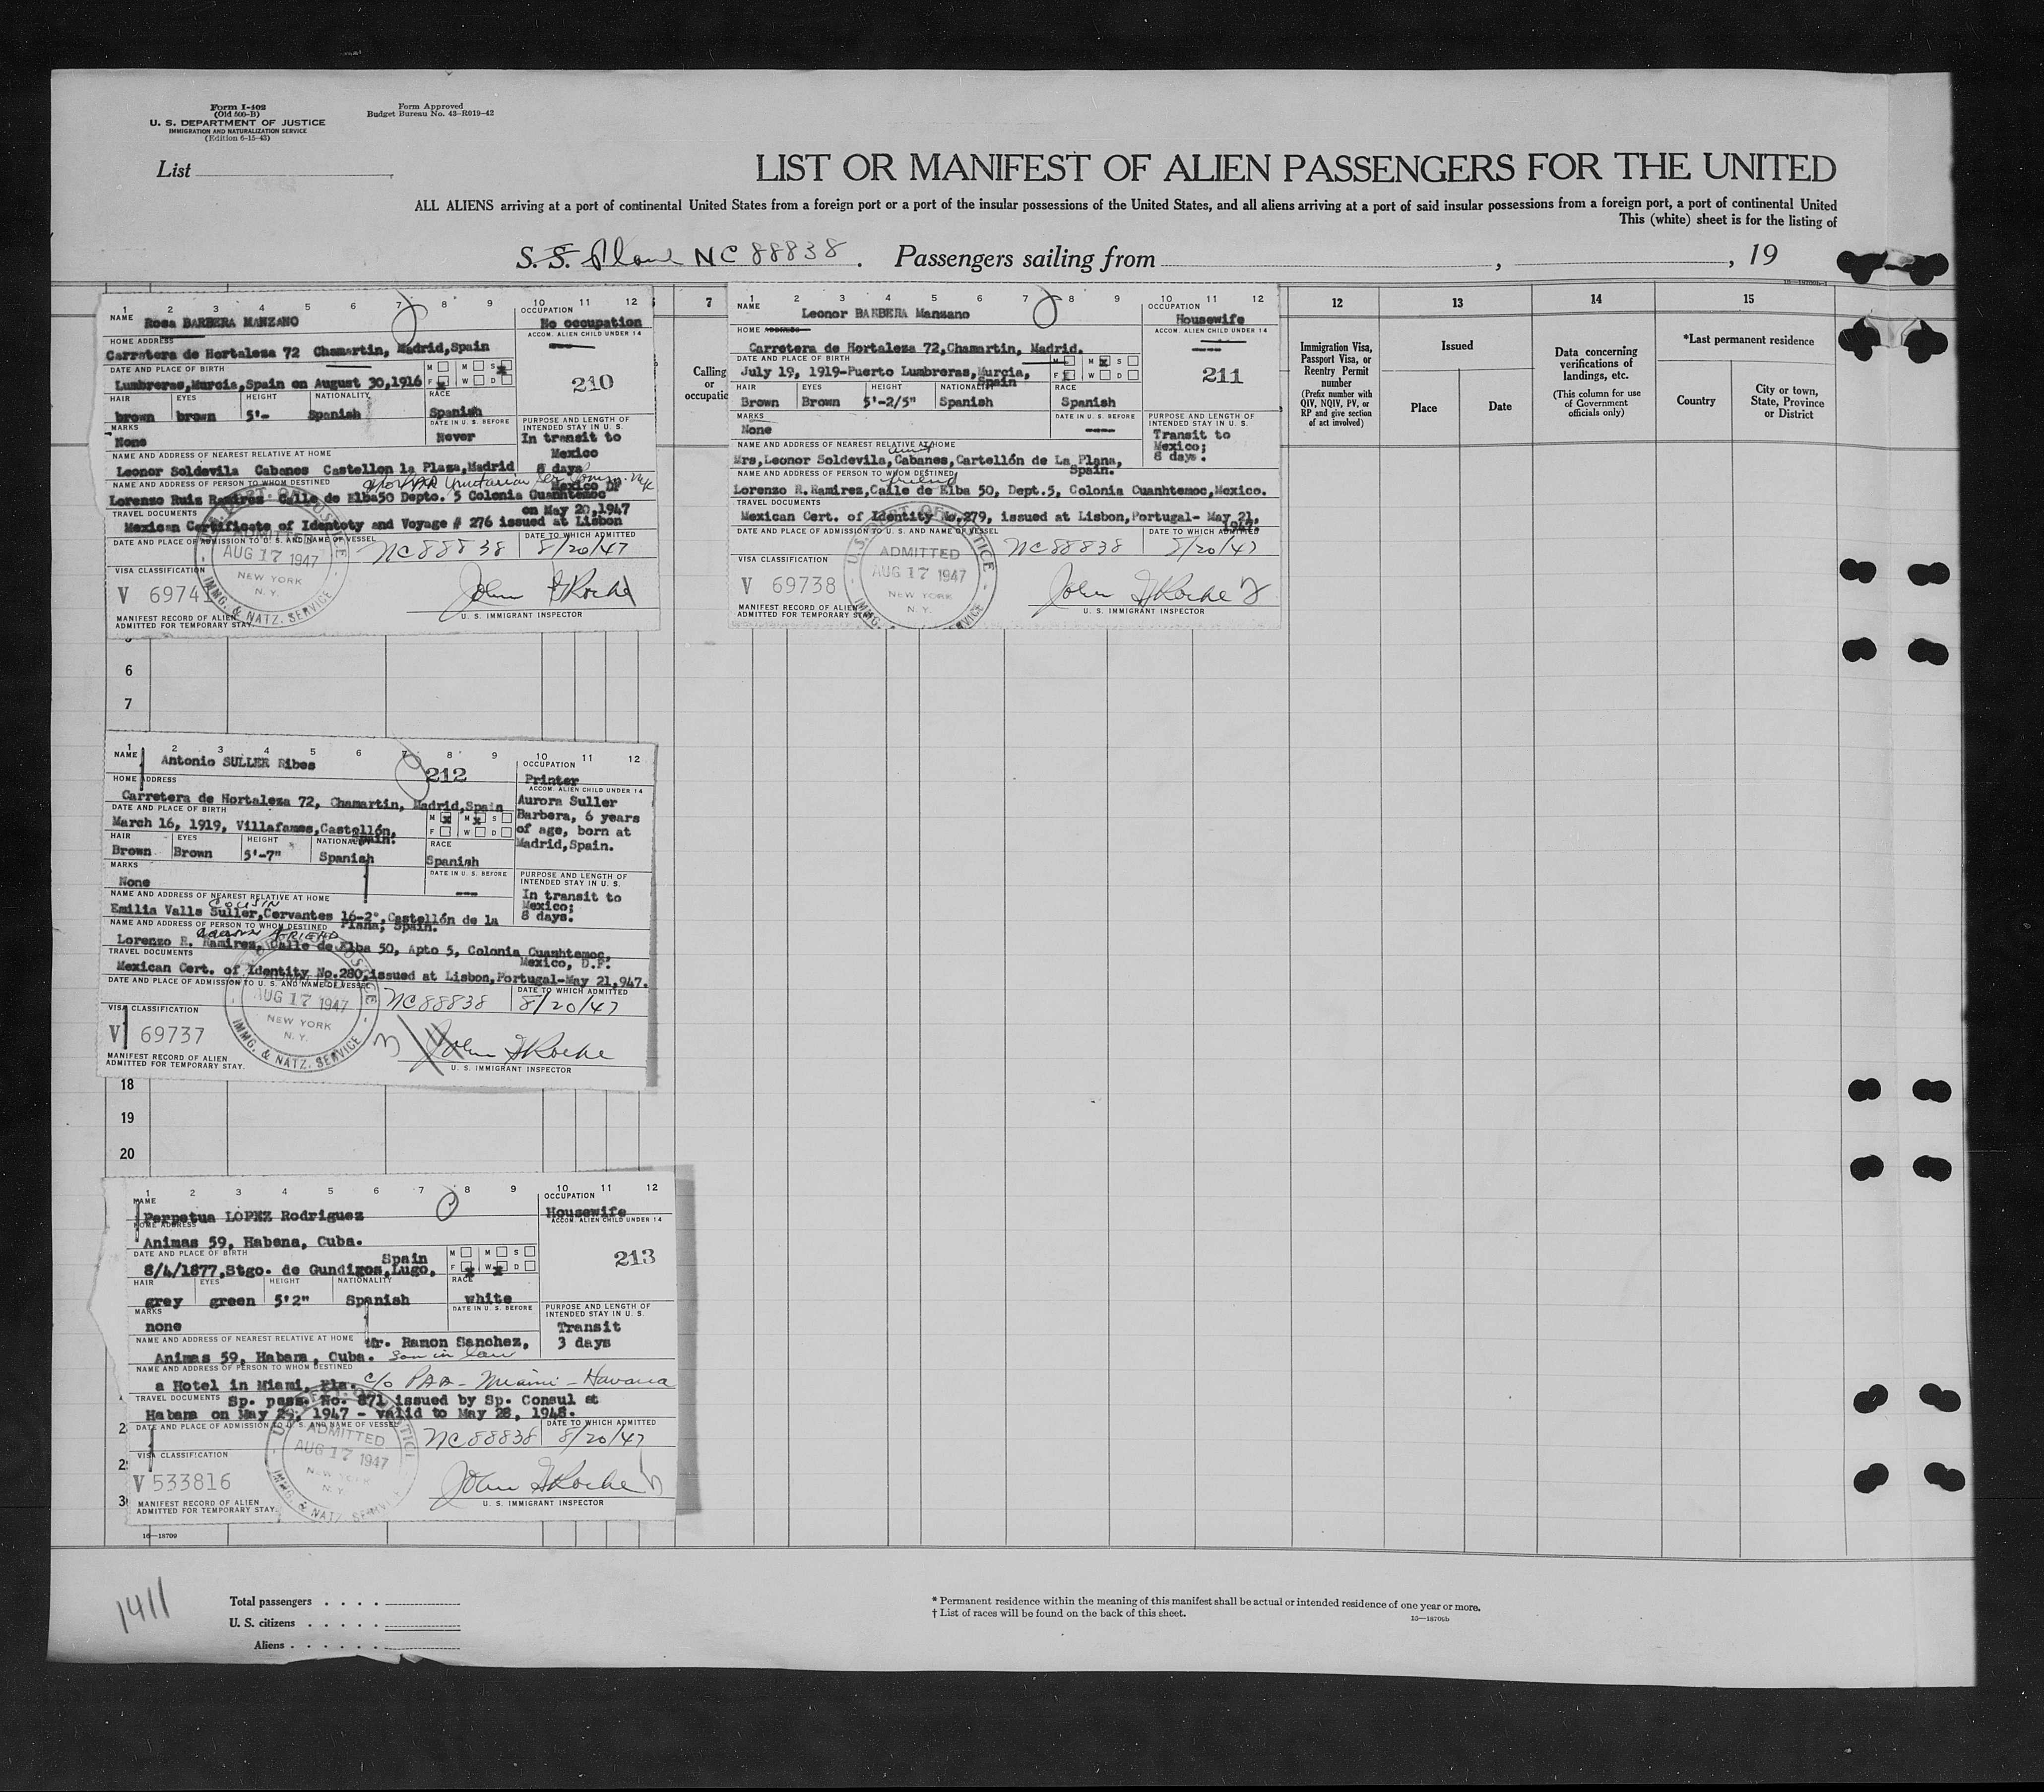 Form I-402
(Old 500-B)
U. S. DEPARTMENT OF JUSTICE
IMMIGRATION AND NATURALIZATION SERVICE
(Edition 6-15-43)
Form Approved
Budget Bureau No. 43-R019-42
List
LIST OR MANIFEST OF ALIEN PASSENGERS FOR THE UNITED
ALL ALIENS arriving at a port of continental United States from a foreign port or a port of the insular possessions of the United States, and all aliens arriving at a port of said insular possessions from a foreign port, a port of continental United
This (white) sheet is for the listing of
S. S. Plane NC 88838. Passengers sailing from , , 19
1 2 3 4 5 6 7 8 9 10 11 12
NAME
Rosa BARBERA MANZANO
OCCUPATION
No occupation
ACCOM. ALIEN CHILD UNDER 14
HOME ADDRESS
Carretera de Hortaleza 72 Chamartin, Madrid,Spain
DATE AND PLACE OF BIRTH
M M S
Lumbreras,Murcia,Spain on August 30,1916
F W D
210
HAIR EYES HEIGHT NATIONALITY RACE
brown brown 5'- Spanish Spanish
MARKS
None
DATE IN U. S. BEFORE
Never
PURPOSE AND LENGTH OF INTENDED STAY IN U. S.
In transit to
Mexico
8 days
NAME AND ADDRESS OF NEAREST RELATIVE AT HOME
Leonor Soldevila Cabanes Castellon la Plaza,Madrid
NAME AND ADDRESS OF PERSON TO WHOM DESTINED
Mexico DF
Lorenzo Ruiz Ramirez Calle de Elba50 Depto. 5 Colonia Cuanhtemoc
TRAVEL DOCUMENTS
on May 20,1947
Mexican Certificate of Identoty and Voyage # 276 issued at Lisbon
DATE AND PLACE OF ADMISSION TO U. S. AND NAME OF VESSEL
DATE TO WHICH ADMITTED
NC 88838 8/20/47
ADMITTED
AUG 17 1947
NEW YORK
N. Y.
IMMG. & NATZ. SERVICE
VISA CLASSIFICATION
V 69741
John G Roche
U. S. IMMIGRANT INSPECTOR
MANIFEST RECORD OF ALIEN
ADMITTED FOR TEMPORARY STAY.
7
Calling
or
1 2 3 4 5 6 7 8 9 10 11 12
NAME
Leonor BARBERA Manzano
OCCUPATION
Housewife
ACCOM. ALIEN CHILD UNDER 14
HOME ADDRESS
Carretera de Hortaleza 72,Chamartin, Madrid.
DATE AND PLACE OF BIRTH
M M S
July 19, 1919-Puerto Lumbreras,Murcia,
Spain
F W D
211
HAIR EYES HEIGHT NATIONALITY RACE
Brown Brown 5'-2/5" Spanish Spanish
MARKS
None
DATE IN U. S. BEFORE
----
PURPOSE AND LENGTH OF INTENDED STAY IN U. S.
Transit to
Mexico;
8 days.
NAME AND ADDRESS OF NEAREST RELATIVE AT HOME
aunt
Mrs,Leonor Soldevila,Cabanes,Cartellón de La Plana,
Spain.
NAME AND ADDRESS OF PERSON TO WHOM DESTINED
friend
Lorenzo R.Ramirez,Calle de Elba 50, Dept.5, Colonia Cuanhtemoc,Mexico.
TRAVEL DOCUMENTS
Mexican Cert. of Identity No.279, issued at Lisbon,Portugal- May 21,
1947.
DATE AND PLACE OF ADMISSION TO U. S. AND NAME OF VESSEL
DATE TO WHICH ADMITTED
NC 88838 8/20/47
ADMITTED
AUG 17 1947
NEW YORK
N. Y.
VISA CLASSIFICATION
V 69738
John G Roche
U. S. IMMIGRANT INSPECTOR
MANIFEST RECORD OF ALIEN
ADMITTED FOR TEMPORARY STAY.
12 13 14 15
Immigration Visa,
Passport Visa, or
Reentry Permit
number
(Prefix number with
QIV, NQIV, PV, or
RP and give section
of act involved)
Issued
Place Date
Data concerning
verifications of
landings, etc.
(This column for use
of Government
officials only)
*Last permanent residence
Country
City or town,
State, Province
or District
6
7
1 2 3 4 5 6 7 8 9 10 11 12
NAME
Antonio SULLER Ribes
212
OCCUPATION
Printer
ACCOM. ALIEN CHILD UNDER 14
Aurora Suller
Barbera, 6 years
of age, born at
Madrid,Spain.
HOME ADDRESS
Carretera de Hortaleza 72, Chamartin, Madrid,Spain
DATE AND PLACE OF BIRTH
M M S
March 16, 1919, Villafames,Castellón,
Spain.
F W D
HAIR EYES HEIGHT NATIONALITY RACE
Brown Brown 5'-7" Spanish Spanish
MARKS
None
DATE IN U. S. BEFORE
---
PURPOSE AND LENGTH OF INTENDED STAY IN U. S.
In transit to
Mexico;
8 days.
NAME AND ADDRESS OF NEAREST RELATIVE AT HOME
COUSIN
Emilia Valls Suller,Cervantes 16-2°,Castellón de la
Plana, Spain.
NAME AND ADDRESS OF PERSON TO WHOM DESTINED
FRIEND
Lorenzo R. Ramirez, Calle de Elba 50, Apto 5, Colonia Cuanhtemoc,
Mexico, D.F.
TRAVEL DOCUMENTS
Mexican Cert. of Identity No.280,issued at Lisbon,Portugal-May 21,947.
DATE AND PLACE OF ADMISSION TO U. S. AND NAME OF VESSEL
DATE TO WHICH ADMITTED
NC 88838 8/20/47
AUG 17 1947
NEW YORK
N. Y.
IMMG. & NATZ. SERVICE
VISA CLASSIFICATION
V 69737
John G Roche
U. S. IMMIGRANT INSPECTOR
MANIFEST RECORD OF ALIEN
ADMITTED FOR TEMPORARY STAY.
18
19
20
1 2 3 4 5 6 7 8 9 10 11 12
NAME
Perpetua LOPEZ Rodriguez
OCCUPATION
Housewife
ACCOM. ALIEN CHILD UNDER 14
HOME ADDRESS
Animas 59, Habana, Cuba.
DATE AND PLACE OF BIRTH
Spain
M M S
8/4/1877,Stgo. de Gundizos,Lugo,
F W D
213
HAIR EYES HEIGHT NATIONALITY RACE
grey green 5'2" Spanish white
MARKS
none
DATE IN U. S. BEFORE
PURPOSE AND LENGTH OF INTENDED STAY IN U. S.
Transit
3 days
NAME AND ADDRESS OF NEAREST RELATIVE AT HOME
Mr. Ramon Sanchez,
Animas 59, Habana, Cuba. Son in law
NAME AND ADDRESS OF PERSON TO WHOM DESTINED
a Hotel in Miami, Fla. c/o PAA - Miami - Havana
TRAVEL DOCUMENTS
Sp. pass. No. 871 issued by Sp. Consul at
Habana on May 29, 1947 - valid to May 28, 1948.
DATE AND PLACE OF ADMISSION TO U. S. AND NAME OF VESSEL
DATE TO WHICH ADMITTED
NC 88838 8/20/47
ADMITTED
AUG 17 1947
NEW YORK
N. Y.
VISA CLASSIFICATION
V 533816
John G Roche
U. S. IMMIGRANT INSPECTOR
MANIFEST RECORD OF ALIEN
ADMITTED FOR TEMPORARY STAY.
16—18709
1411
Total passengers
U. S. citizens
Aliens
* Permanent residence within the meaning of this manifest shall be actual or intended residence of one year or more.
† List of races will be found on the back of this sheet.